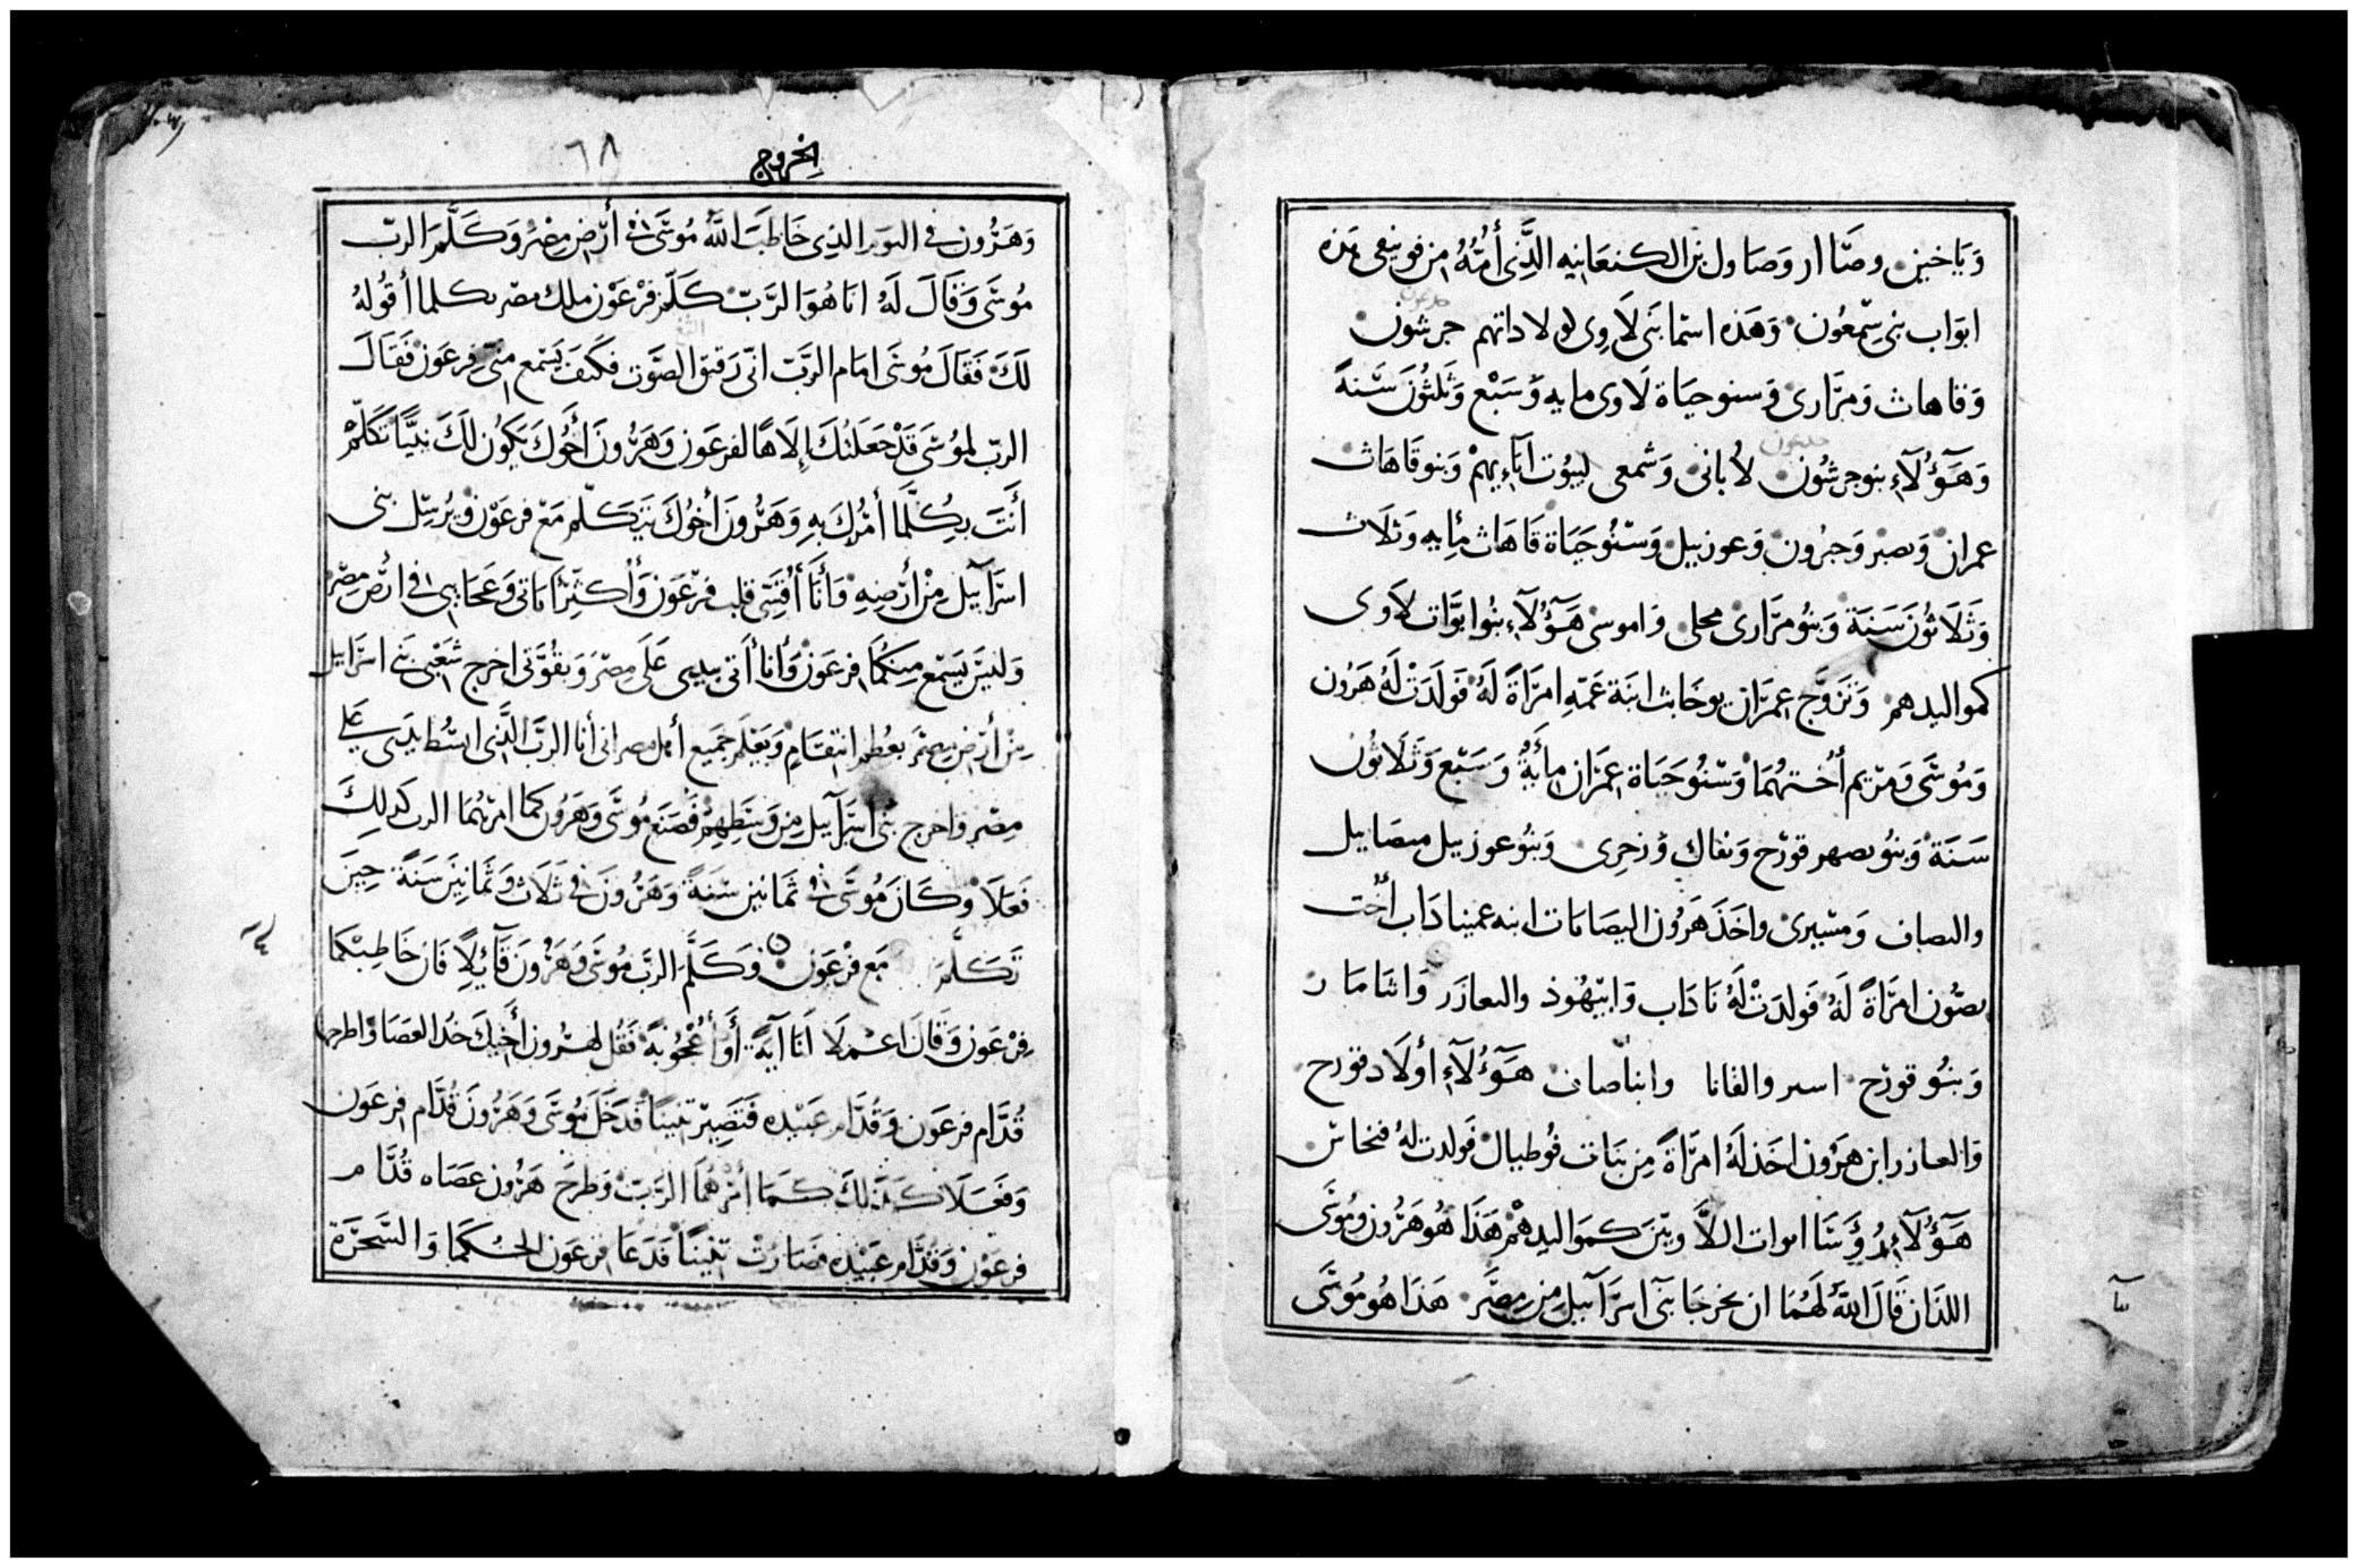 وَيَاخين وصَّاار وَصَاول بن الكنعَانيه الذَّي أُمُّهُ من فونيقى هَذه
ابوَاب بنى سِمْعُون وَهَذه اسمَا بَنى لَاوى لولاداتهم جرشون
وَقاهاث وَمرَّارى وَسنو حيَاة لَاوى مايه وَسَبْع وَثَلثُونَ سَنةً
وَهَؤُلَآءِ بنو جرشُون لاُبانى وَشمعى لبيُوت ابَآءِيهِمْ وَبنو قَاهَاث
عمران وَيصير وَجبرُون وَعوزييل وَسنُو حَيَاة قَاهَاث مأيه وَثلَاث
وَثَلَاثُونَ سَنَة وَبنُو مرَّارى محلى وَاموسى هَؤُلَآءِ بنُوا بوَّات لَاوى
كمواليدهم وَتزوَّج عِمرَان يوخَابث ابنَة عَمّهِ امرَاةً لَهُ فَولَدَتْ لَهُ هَرُون
وَمُوسَى وَمَريم أُختهُمَا وَسنُو حَيَاة عِمرَان مِايَةً وَسَبْع وَثَلَاثُون
سَنَة وَبنُو يصهر قورَح وَنفاك وَزخرِى وَبنُو عوزييل ميصَاييل
والصاف وَمسيرى واخَذَ هَرُون اليصَابَات ابنه عمينا دَاب أُخت
يصُّون امرَاةً لَهُ فَولدَتْ لَهُ نَادَاب وَابيهُوذ والعازَر وَاثَامَار
وَبنُو قورَح اسير والقانا وابناصاف هَؤُلَآءِ أولَاد قورح
وَالعازر ابن هرُون اخَذ لَهُ امرَاةً مِن بنَات فُوطيال فَولدت لهُ فنخاس
هَؤُلَآءِ رُؤَسَا ابوات اللاَّ ويّينَ كمَوَاليدِهْم هَذَا هُو هَرُون ومُوسَى
اللذَان قَالَ اللهُ لَهُمَا ان يخرجَا بنَى اسرَآييل مِن مِصْرَ هَذَا هُو مُوسَى
الخروج ٦٨
وَهَرُون فى اليَوم الذِى خَاطَبَ اللهُ مُوسَى فى أرْض مِصْرَ وَكَلَّمَ الربّ
مُوسَى وَقَالَ لَهُ انا هُوَ الرَّبّ كَلّم فرْعَوْن ملك مصر بكلما أقُولهُ
لَكَ فَقَالَ مُوسَى امَام الرَّبّ انّى دَقيق الصَّوت فكَيفَ يَسْمع منّى فِرعَون فَقَالَ
الربّ لموُسَى قَدْ جَعَلتُكَ إلَاهًا لفرعَون وَهَرُونَ أخُوكَ يَكُون لَكَ نبيًّا تَكَلّمْ
أنتَ بِكُلَّمَا أمُركَ بهِ وَهَرُونَ أخوُكَ يَتكَلّم مَعْ فرعَوْن وَيُرسِل بنى
اسرَآييل مِنْ أرْضِهِ وَأنَا أُقَسّى قَلب فرْعَون وَأكثِرُ أيَاتى وَعَجَايبى فى ارْض مِصْر
وَليْسَ يَسْمع مِنكُمَا فرعَوْن وَأنا أتى بيدِى عَلَى مصْرَ وَبقُوَّتى اخرج شَعْبى بَنى اسرَاييل
مِنْ أرْض مِصْرَ بعُظم انتقَامٍ وَيَعْلَم جَميع أهل مصر انى أنا الرَّبّ الَّذى ابسُط يَدِى عَلى
مِصْر واخرج بنى اسرَآييل مِن وَسَطِهِمْ فَصَنَع مُوسَى وَهَرُون كَما امرَهُمَا الرب كَذلِكَ
فَعَلَا وَكَانَ مُوسَى فى ثَمانين سَنَةً وَهَرُونَ فى ثلَاث وَثَمَانِينَ سَنَةً حِينَ
تَكلَّمَ مَع فرْعَون وَكَلَّمَ الربّ مُوسَى وَهَرُونَ قَآئِلًا فَان خَاطبكمَا
فِرْعَون وَقَال اعْمَلَا لَنَا آيَةً أَوْ أُعْجُوبَةً فَقُل لهرُون أخِيكَ خذ العَصَا وَاطرحهَا
قُدَّام فرعَون وَقُدَّام عَبيْده فَتَصِيرْ تنينًا فَدَخَلَ مُوسَى وَهَرُونَ قُدَّام فرعَون
وَفَعَلَا كَذلكَ كَمَا أمَرَهُمَا الرَّبّ وَطرحَ هَرُون عَصَاه قُدَّام
فرعَوْن وَقُدَّام عَبيْده فصَارَتْ تنينًا فَدَعَا فرعَون الحُكمَا وَالسَّحَرَة